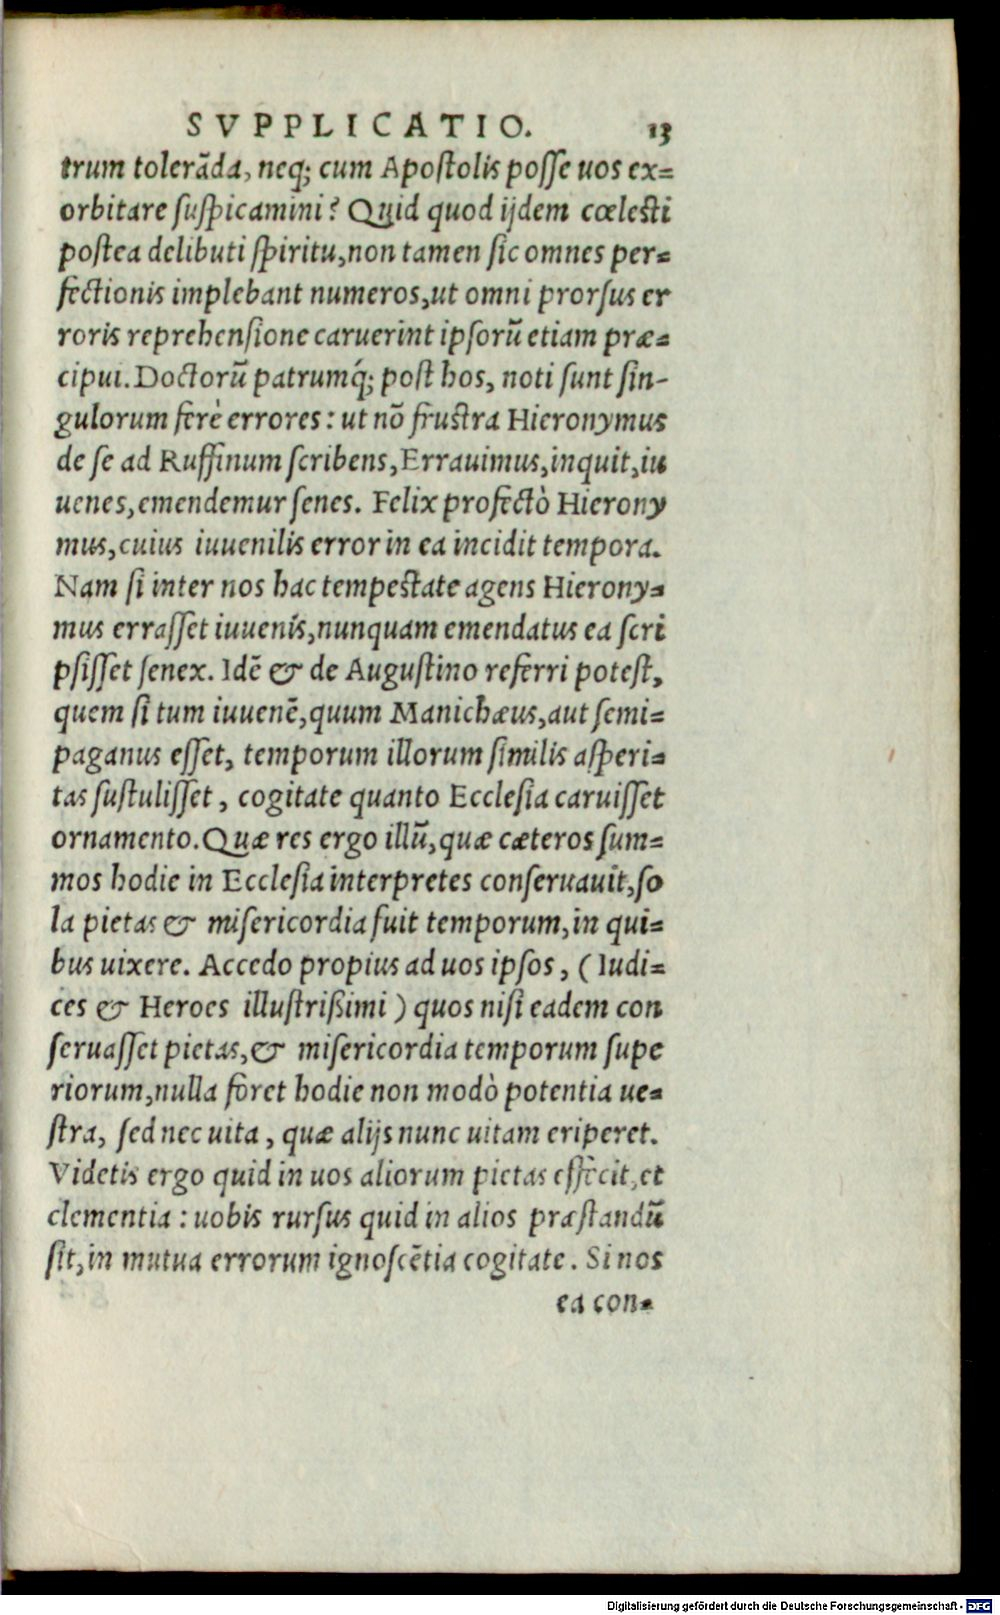 SVPPLICATIO. 13
trum tolerãda, neq; cum Apostolis posse uos ex=
orbitare suspicamini? Quid quod ijdem cœlesti
postea delibuti spiritu, non tamen sic omnes per=
fectionis implebant numeros, ut omni prorsus er
roris reprehensione caruerint ipsorũ etiam præ=
cipui. Doctorũ patrumq́; post hos, noti sunt sin-
gulorum ferè errores: ut nõ frustra Hieronymus
de se ad Ruffinum scribens, Errauimus, inquit, iu
uenes, emendemur senes. Felix profectò Hierony
mus, cuius iuuenilis error in ea incidit tempora.
Nam si inter nos hac tempestate agens Hierony=
mus errasset iuuenis, nunquam emendatus ea scri
psisset senex. Idẽ & de Augustino referri potest,
quem si tum iuuenẽ, quum Manichæus, aut semi=
paganus esset, temporum illorum similis asperi=
tas sustulisset, cogitate quanto Ecclesia caruisset
ornamento. Quæ res ergo illũ, quæ cæteros sum=
mos hodie in Ecclesia interpretes conseruauit, so
la pietas & misericordia fuit temporum, in qui=
bus uixere. Accedo propius ad uos ipsos, (Iudi=
ces & Heroes illustrißimi) quos nisi eadem con
seruasset pietas, & misericordia temporum supe
riorum, nulla foret hodie non modò potentia ue=
stra, sed nec uita, quæ alijs nunc uitam eriperet.
Videtis ergo quid in uos aliorum pietas effecit, et
clementia: uobis rursus quid in alios præstandũ
sit, in mutua errorum ignoscẽtia cogitate. Si nos
ea con=
Digitalisierung gefördert durch die Deutsche Forschungsgemeinschaft - DFG